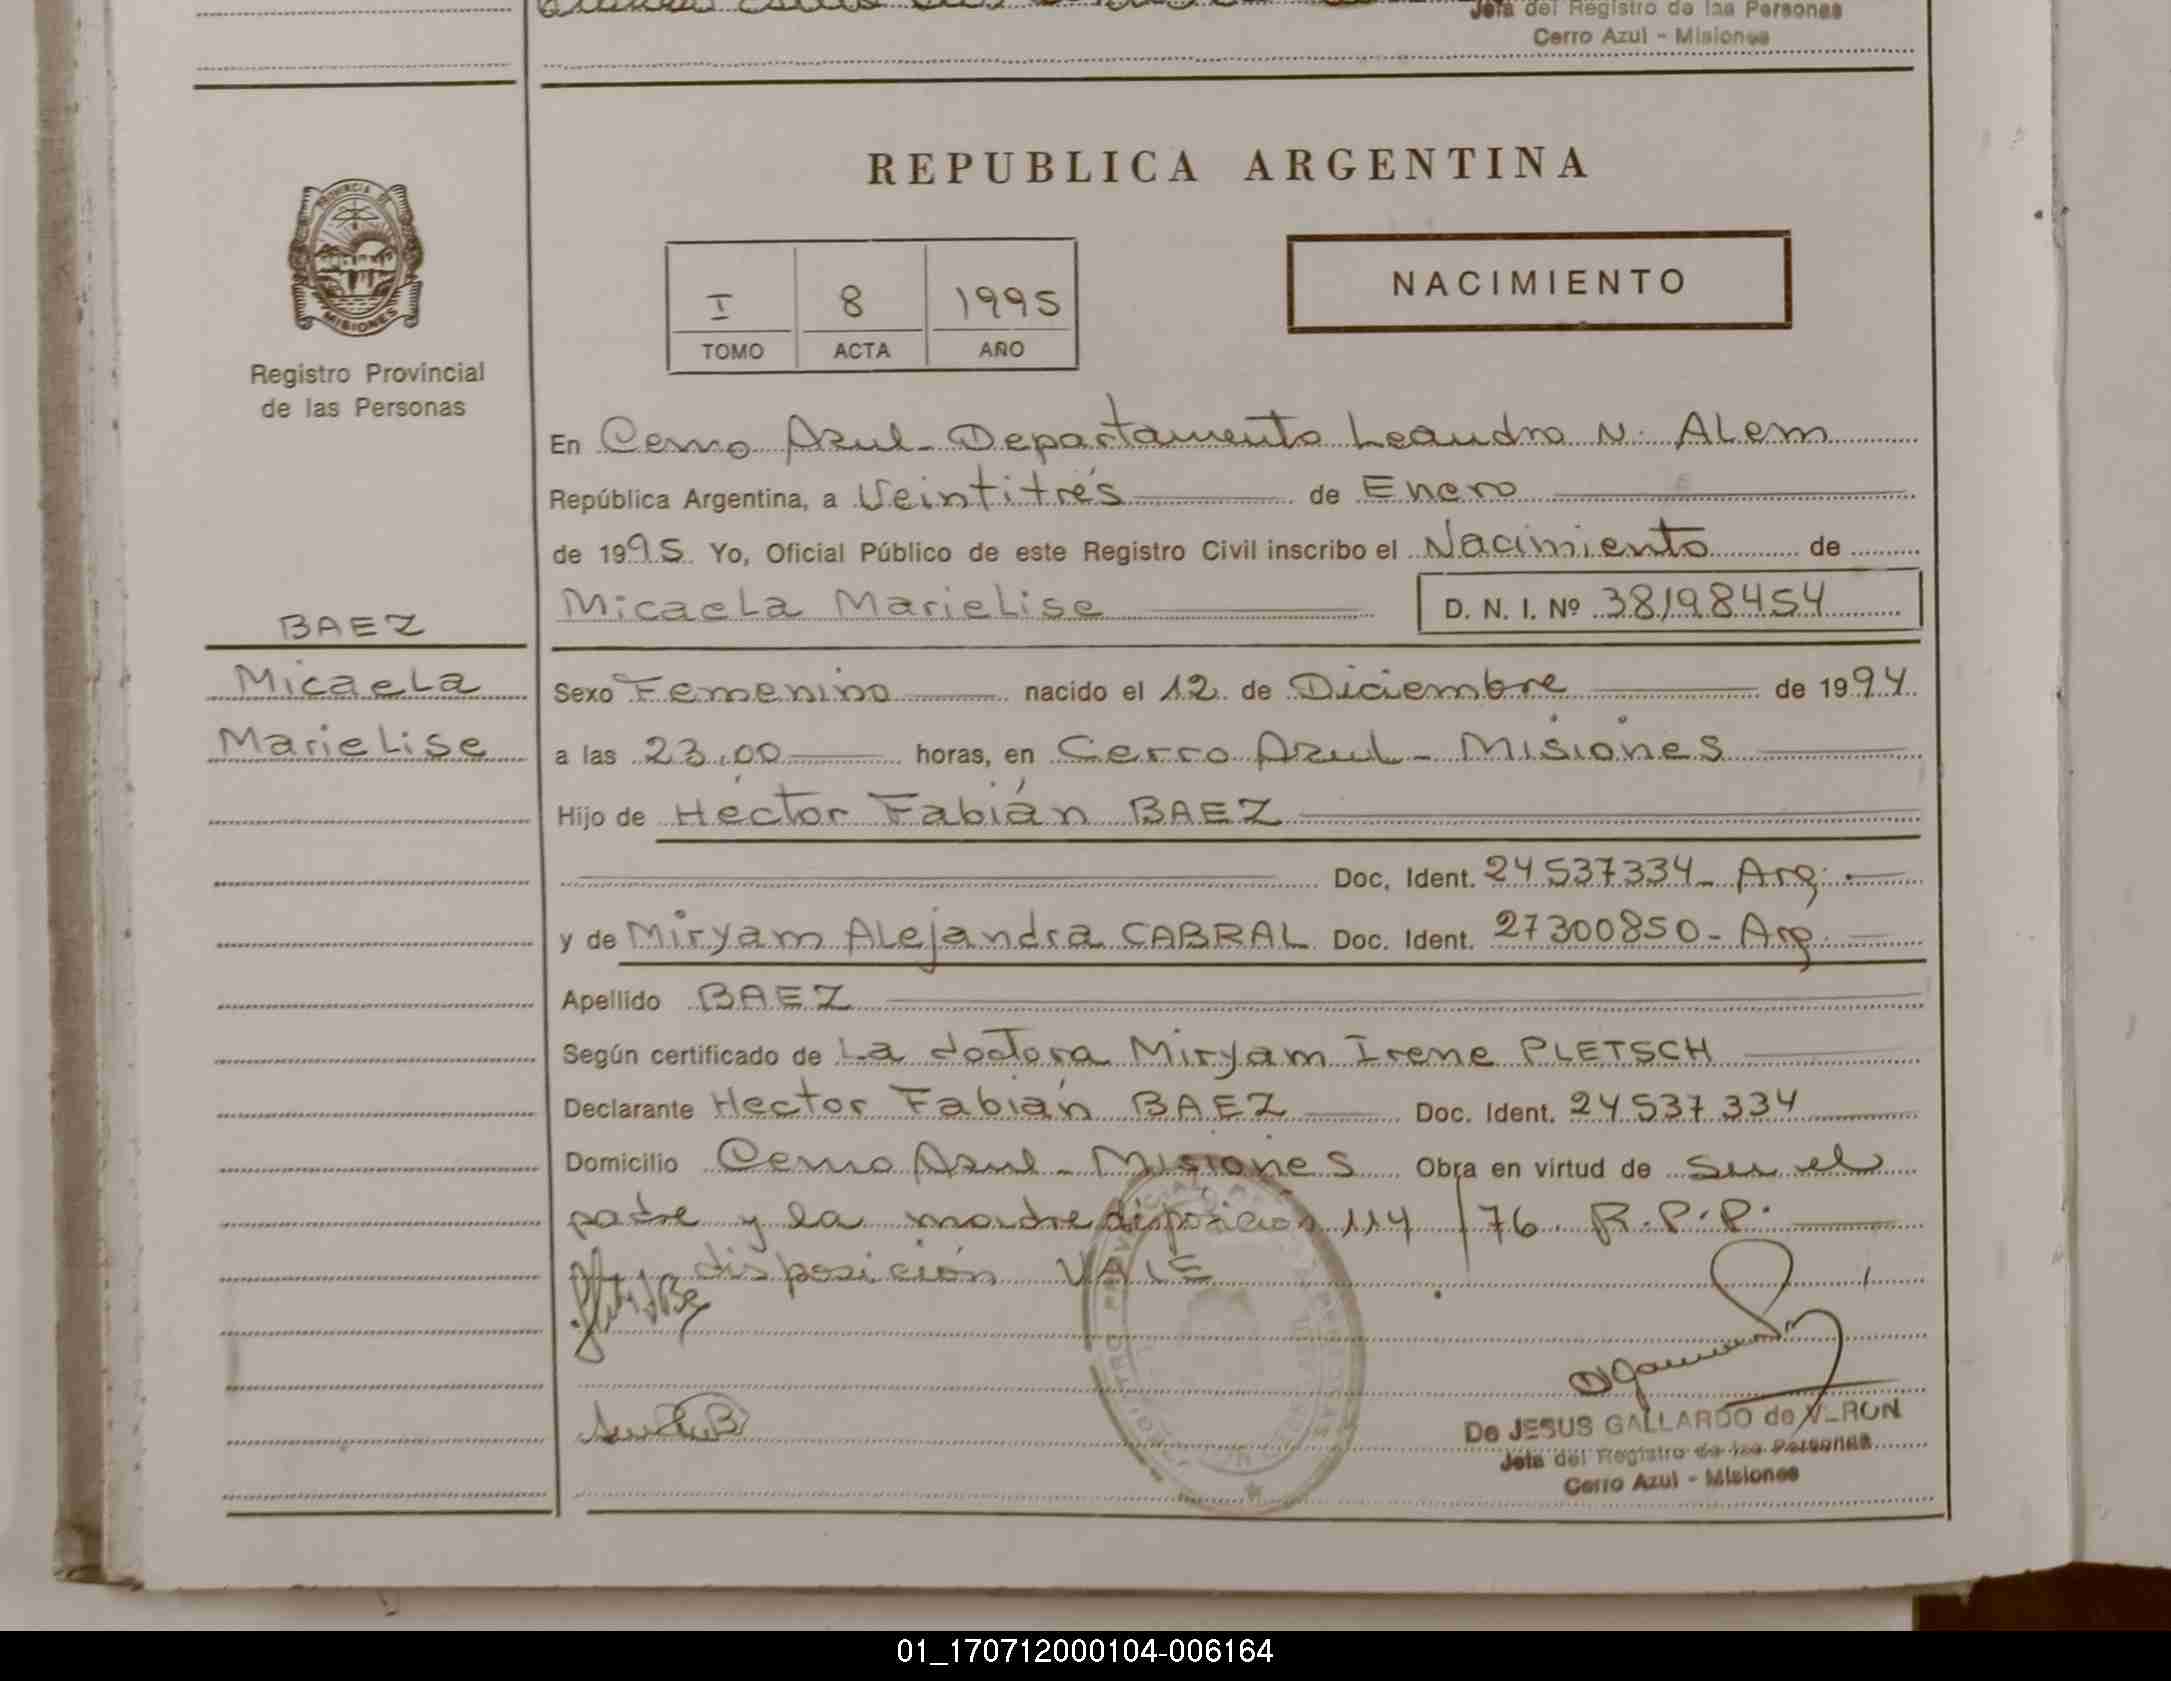 Jefa del Registro de las Personas
Cerro Azul - Misiones
REPUBLICA ARGENTINA
PROVINCIA DE
MISIONES
Registro Provincial
de las Personas
I 8 1995
TOMO ACTA AÑO
NACIMIENTO
En Cerro Azul - Departamento Leandro N. Alem
República Argentina, a Veintitrés de Enero
de 1995 Yo, Oficial Público de este Registro Civil inscribo el Nacimiento de
Micaela Marielise D. N. I. Nº 38198454
BAEZ
Micaela
Marielise
Sexo Femenino nacido el 12 de Diciembre de 1994
a las 23,00 horas, en Cerro Azul - Misiones
Hijo de Héctor Fabián BAEZ
Doc. Ident. 24537334 - Arg.
y de Miryam Alejandra CABRAL Doc. Ident. 27300850 - Arg.
Apellido BAEZ
Según certificado de La doctora Miryam Irene PLETSCH
Declarante Hector Fabián BAEZ Doc. Ident. 24537334
Domicilio Cerro Azul - Misiones Obra en virtud de Ser el
padre y la madre disposicion 114/76 R.P.P.
disposición VALE
De JESUS GALLARDO de VERON
Jefa del Registro de las Personas
Cerro Azul - Misiones
01_170712000104-006164